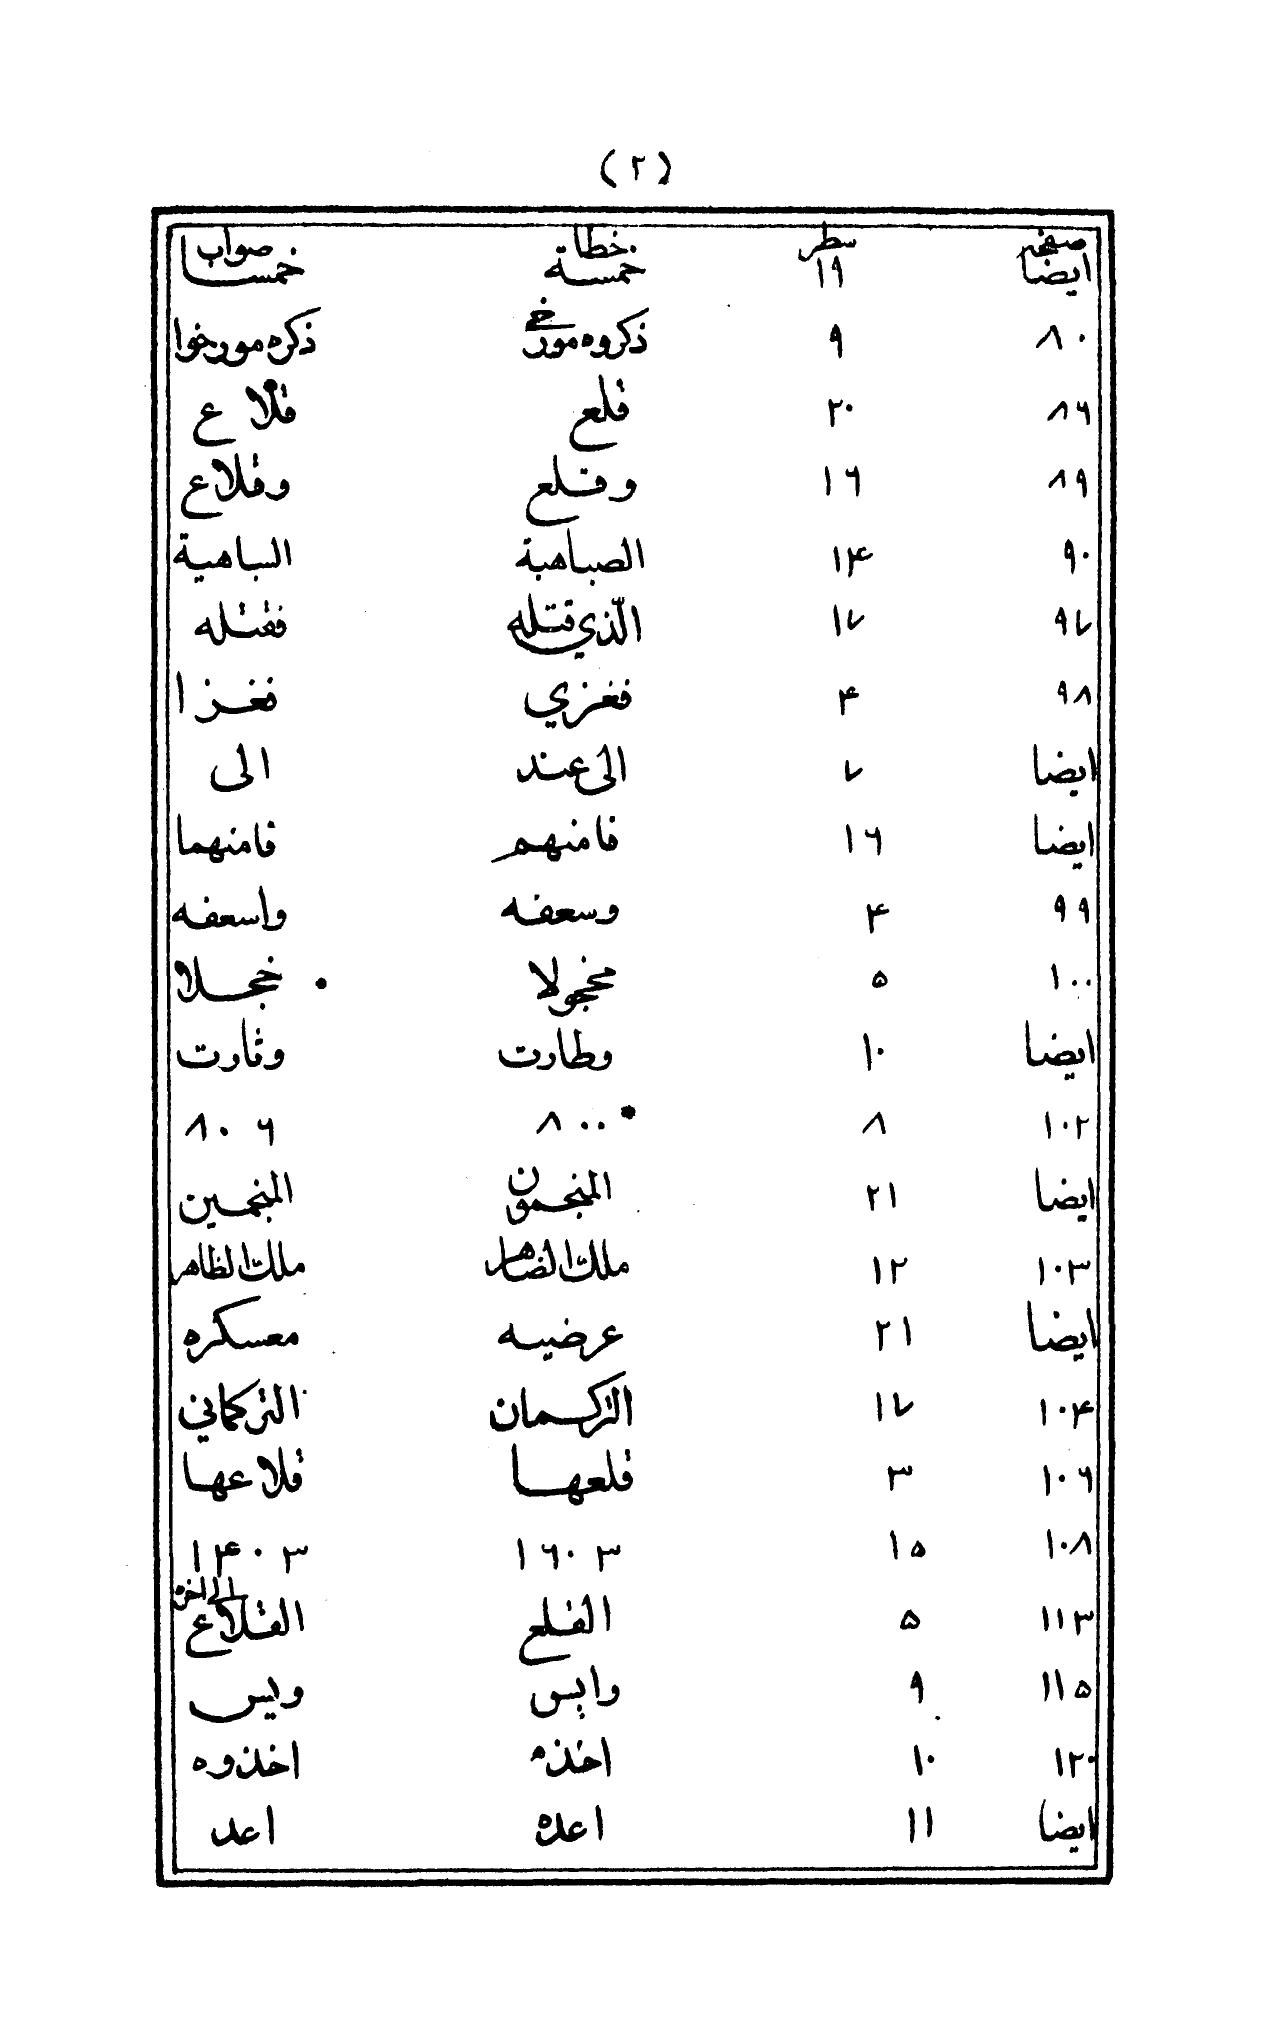 (٢)
صفحه سطر خطاة صواب
ايضا ١٩ خمسة خمسا
٨٠ ٩ ذكروه مورخي ذكره مورخوا
٨٦ ٢٠ قلع قلاع
٨٩ ١٦ وقلع وقلاع
٩٠ ١٤ الصباهية السباهية
٩٧ ١٧ الّذي قتله فقتله
٩٨ ٤ فغزي فغزا
ايضا ٧ الى عند الى
ايضا ١٦ فامنهم فامنهما
٩٩ ٤ وسعفه واسعفه
١٠٠ ٥ مخجولا خجلا
ايضا ١٠ وطارت وثارت
١٠٢ ٨ ٨٠٠ ٨٠٦
ايضا ٢١ المنجمون المنجمين
١٠٣ ١٢ ملك الضاهر ملك الظاهر
ايضا ٢١ عرضيه معسكره
١٠٤ ١٧ التركمان التركماني
١٠٦ ٣ قلعها قلاعها
١٠٨ ١٥ ١٦٠٣ ١٤٠٣
الى اخره
١١٣ ٥ القلع القلاع
١١٥ ٩ وايس ويس
١٢٠ ١٠ اخذه اخذوه
ايضا ١١ اعده اعد